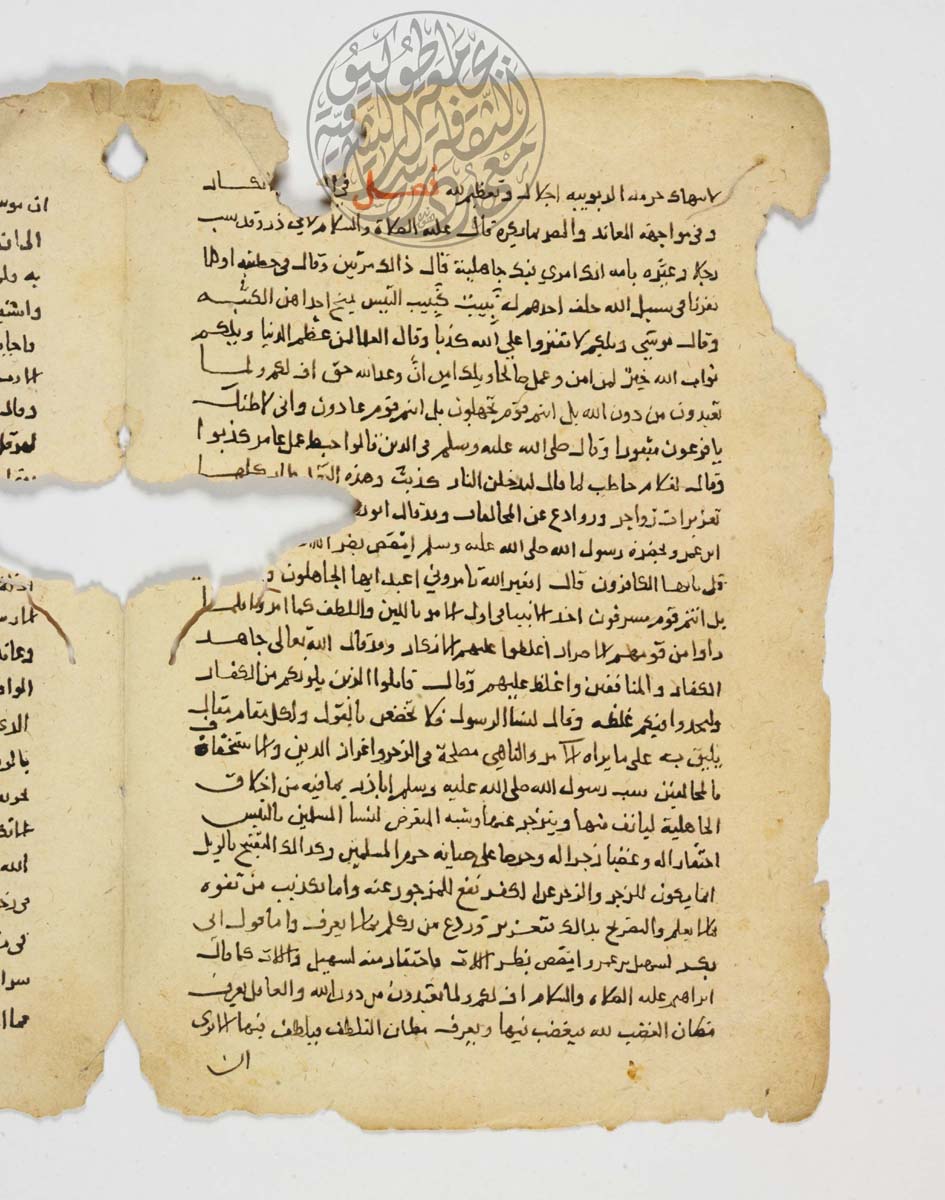 لانتهاك حرمة الربوبية اجلالا وتعظيم لله فصل في الانكار
وفي مواجهة المعاند والمصر بما يكره قال عليه الصلاة والسلام لابي ذر وقد سب
رجلا وعيره بامه انك امرئ فيك جاهلية قال ذالك مرتين وقال في خطبته اوكلما
نفرنا في سبيل الله خلف احدهم له نبيب كنبيب التيس يمنح احداهن الكثبه
وقال موسى ويلكم لا تفتروا على الله كذبا وقال العلما لمن عظم الدنيا ويلكم
ثواب الله خير لمن امن وعمل صالحا ويلك امن ان وعد الله حق اف لكم ولما
تعبدون من دون الله بل انتم قوم تجهلون بل انتم قوم عادون واني لاظنك
يا فرعون مثبورا وقال صلى الله عليه وسلم في الذين قالوا حبط عمل عامر كذبوا
وقال لغلام حاطب لما قال ليدخلن النار كذبت وهذه كلها
تعزيرات زواجر وروادع عن المخالفات وقد قال ابو
ابن عمرو بحضرة رسول الله صلى الله عليه وسلم امصص بظر اللات
قل يايها الكافرون قال افغير الله تامروني اعبد ايها الجاهلون
بل انتم قوم مسرفون اخذ الانبيا في اول الامر باللين واللطف كما امروا فلما
راوا من قومهم الاصرار اغلظوا عليهم الانكار وقد قال الله تعالى جاهد
الكفار والمنافقين واغلظ عليهم وقال قاتلوا الذين يلونكم من الكفار
وليجدوا فيكم غلظه وقال لنسا الرسول فلا تخضعن بالقول ولكل مقام مقال
يليق به على ما يراه الامر والناهي مصلحة في الزجر واعزاز الدين والاستخفاف
بالمخالفين سب رسول الله صلى الله عليه وسلم ابا ذر بما فيه من اخلاق
الجاهلية ليانف منها وينزجر عنها وشبه المتعرض لنسا المسلمين بالتيس
احتقارا له وغضبا زجرا له وحرصا على صيانه حرم المسلمين وكذالك المفتتح بالويل
انما يكون للزجر والزجر عدل لكف ونفع للمزجور عنه واما تكذيب من تفوه
بما لا يعلم والتصريح بذالك فتعزير وردع من تكلم بما لا يعرف واما قول ابي
بكر لسهيل بن عمرو امصص بظر اللات فاحتقار منه لسهيل واللات كما قال
ابراهيم عليه الصلاه والسلام اف لكم ولما تعبدون من دون الله والعاقل يعرف
مظان الغضب لله فيغضب فيها ويعرف مظان التلطف فيلطف فيها الا ترى
ان